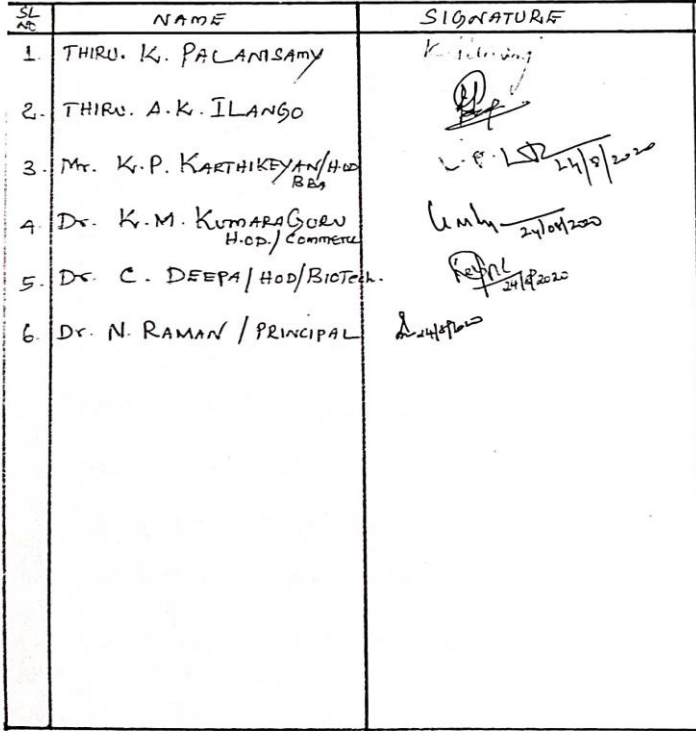 SL NO NAME SIGNATURE
1. THIRU. K. PALANISAMY
2. THIRU. A.K. ILANGO
3. Mr. K.P. KARTHIKEYAN/HOD 24/8/2020
BBA
4. Dr. K.M. KUMARAGURU 24/08/2020
H.O.D./Commerce
5. Dr. C. DEEPA/HOD/BIOTech. 24/8/2020
6. Dr. N. RAMAN / PRINCIPAL 24/8/2020